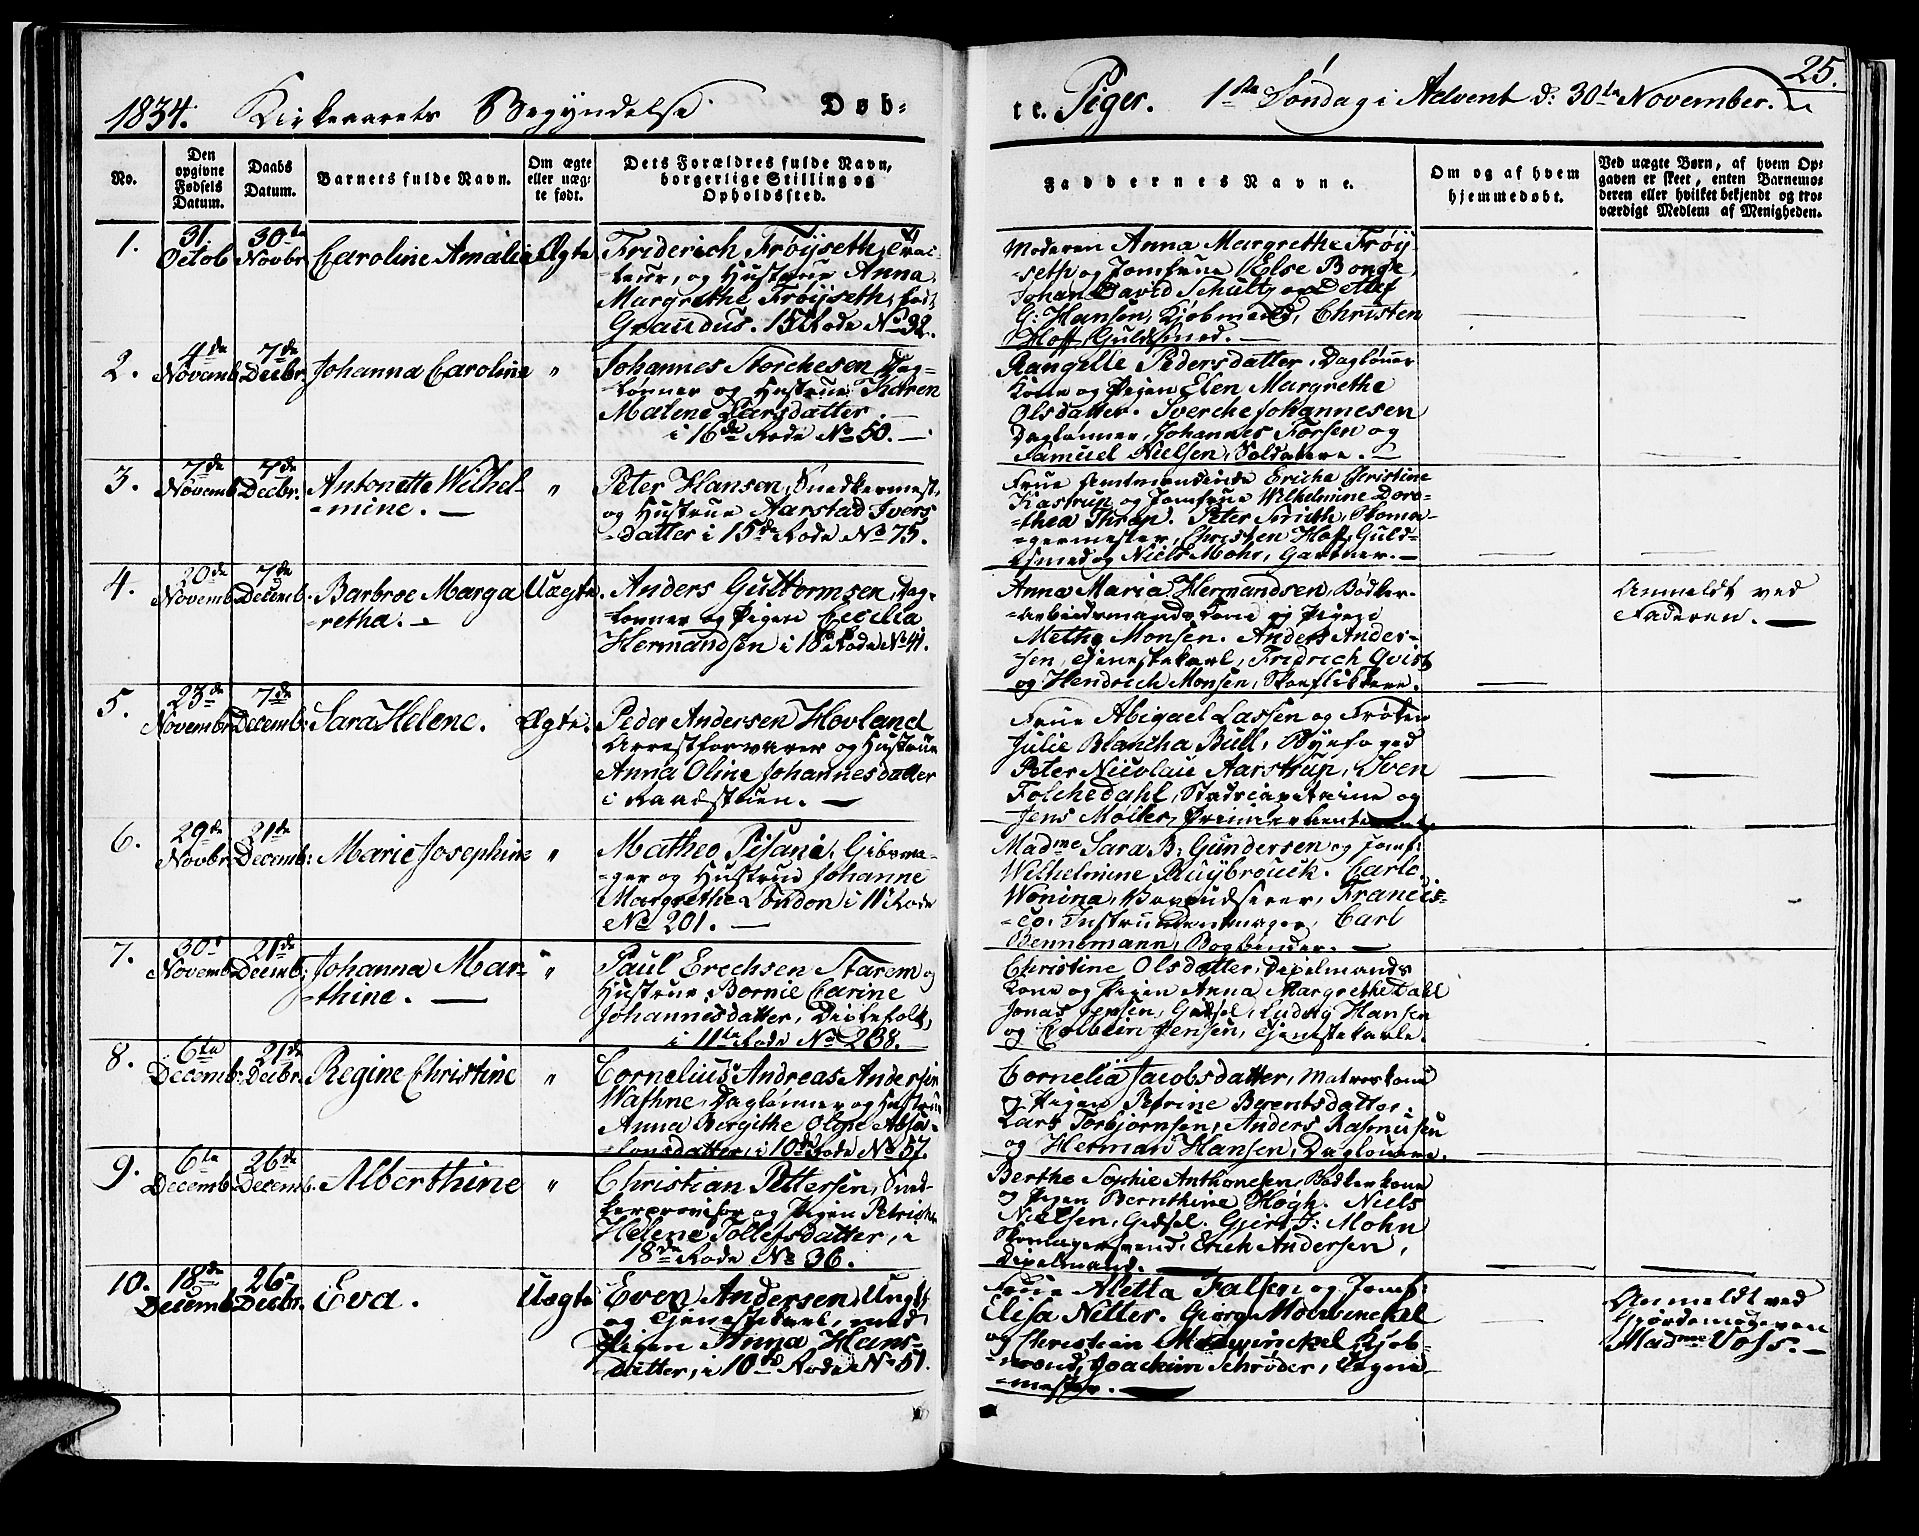 25.
1834. Kirkeaarets Begyndelse Døb-
te Piger. 1ste Søndag i Advent d: 30te November.
No.
Den opgivne Fødsels Datum.
Daabs Datum.
Barnets fulde Navn.
Om ægte eller uægte født.
Dets Forældres fulde Navn, borgerlige Stilling og Opholdssted.
Faddernes Navne.
Om og af hvem hjemmedøbt.
Ved uægte Børn, af hvem Opgaven er skeet, enten Barnemoderen eller hvilket bekjendt og troværdigt Medlem af Menigheden.
1.
31. Octob
30te Novbr
Caroline Amalia
Ægte
Friderich Frøyseth,
og Hustrue Anna
Margrethe Frøyseth, født
Graudus. 15 Rode No 32.
Moderen Anna Margrethe Frøy-
seth og Jomfrue Else Bonge,
Johan David Schultz og Detlef
G: Hansen, Kjøbmænd, Christen
Hoff, Guldsmed.
2.
4de Novemb.
7de Decbr.
Johanna Caroline
"
Johannes Storchesen Dag-
lønner og Hustrue Karen
Malene Larsdatter.
i 16de Rode No 50.
Rangelle Pedersdatter, Daglønner
Kone og Pigen Elen Margrethe
Olsdatter. Sverche Johannesen
Daglønner, Johannes Forsen og
Samuel Nielsen, Soldatere.
3.
7de Novemb
7de Decbr.
Antonette Wilhel-
-mine.
"
Peter Hansen, Snedkermest.
og Hustrue Aarstad Ivers
-datter i 15de Rode No 75.
Frue Amtmandinde Eriche Christine
Kastrup og Jomfrue Wilhelmine Doro-
-thea Thrap. Peter Smith, Skoma-
-germester, Christen Hoff, Guld-
smed og Niels Mohr, Gartner.
4.
20de Novemb
7de Decemb.
Barbroe Marga
-retha.
Uægte.
Anders Guttormsen, Dag-
lønner og Pigen Cecilia
Hermandsen i 18de Rode No 41.
Anna Maria Hermandsen, Bødker-
-arbeidsmands Kone og Pigen
Methe Monsen. Anders Ander-
sen, Tjenestekarl, Fridrich Qvist
og Hendrich Monsen, Skoeflikkere.
Anmeldt ved
Faderen.
5.
23de Novembr
7de Decemb:
Sara Helene.
Ægte.
Peder Andersen Hovland
Arrestforvarer og Hustrue
Anna Oline Johannesdatter
i Raadstuen.
Frue Abigael Lassen og Frøken
Julie Blancha Bull, Byefoged
Peter Nicolau Aarstrup, Sven
Folchedahl, Stadscapitaine og
Jens Møller, Premierlieutenant.
6.
29de Novbr.
21de Decemb:
Marie Josephine
"
Matheo Pisani, Gibsma-
-ger og Hustrue Johanne
Margrethe London i 11te Rode
No 201.
Madme Sara B: Gundersen og Jomf:
Wilhelmine Ruybrouck. Carlo
Wonina, Francis-
-co, Instrumentmager, Carl
Bennemann, Bogbinder.
7.
30t Novemb
21de Decemb:
Johanna Mar-
-thine.
"
Paul Erechsen Starem og
Hustrue, Bornie Carine
Johannisdatter,
i 11te Rode No 208.
Christine Olsdatter,
Kone og Pigen Anna Margrethe Dahl
Jonas Jensen, Gedsel, Ludvig Hansen
og Jensen, Tjenestekarle.
8.
6te Decemb:
21de Decbr.
Regine Christine
"
Cornelius Andreas Andersen
Wathne, Daglønner og Hustrue
Anna Birgithe Olene Absa-
-lonsdatter, i 10de Rode No 57.
Cornelia Jacobsdatter, Matroskone
og Pigen Petrine Berentsdatter,
Lars Torbjørnsen, Anders Rasmusen
og Herman Hansen, Daglønnere.
9.
6te Decemb
26de Decemb.
Alberthine
"
Christian Pettersen, Sned-
og Pigen Petriche
Helene Tollefsdatter, i
18de Rode No 36.
Berthe Sophie Anthonesen, Bødkerkone
og Pigen Bernthine Høgh. Niels
Nielsen, Gedsel. Gjert J: Mohn
Skomagersvend, Erich Andersen,
10.
18de Decemb
26de Decbr.
Eva.
Uægte
Even Andersen, Ungk:
og Tjenestekarl, med
Pigen Anna Hans-
-datter, i 10de Rode No 51.
Frue Aletta Falsen og Jomf:
Elisa Nitter. Giørg Mowinckel
og Christian Mowinckel, Kjøb-
-mænd, Joachim Schrøder, Tegne-
-mester.
Anmeldt ved
Gjordemoderen
Madme Voss.